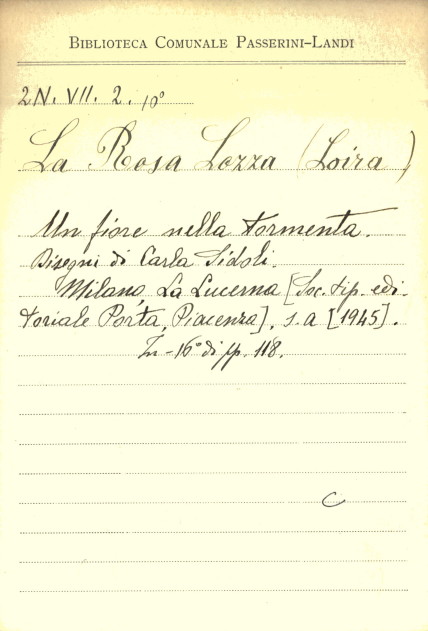 BIBLIOTECA COMUNALE PASSERINI-LANDI
2N. VII. 2. 10°
La Rosa Lozza (Loira)
Un fiore nella tormenta.
Disegni di Carla Sidoli.
Milano, La Lucerna [Soc. tip. edi-
toriale Porta, Piacenza], s. a [1945].
In-16° di pp. 118.
C